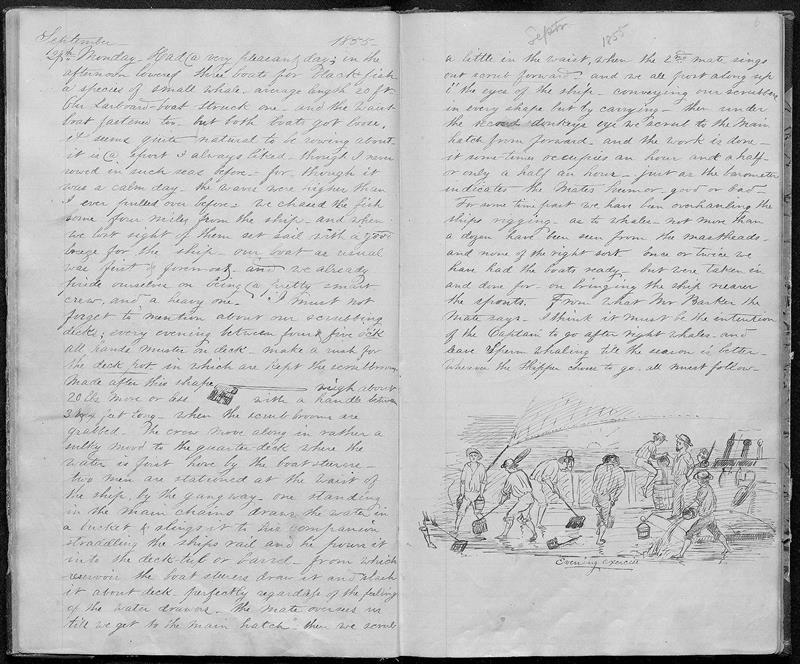 September 1855-
24th Monday. Had a very pleasant day; in the
afternoon lowered three boats for black fish
a species of small whale - average length 20 ft.
Our Larboard boat struck one - and the waist
boat fastened too - but both boats got loose,
it seems quite natural to be rowing about
it is a sport I always liked - though I never
rowed in such seas before - for though it
was a calm day - the waves were higher than
I ever pulled over before; we chased the fish
some four miles from the ship - and when
we lost sight of them set sail with a good
breeze for the ship - our boat as usual
was first & foremost, and we already
pride ourselves on being a pretty smart
crew, and a heavy one - I must not
forget to mention about our scrubbing
decks; every evening between four & five ock
all hands muster on deck - make a rush for
the deck pot in which are kept the scrub brooms
made after this shape weigh about
20 lbs more or less with a handle between
feet long - when the scrub brooms are
grabbed. The crew move along in rather a
sulky mood to the quarter deck where the
water is first hove by the boatsteerers -
two men are stationed at the waist of
the ship, by the gangway - one standing
in the main chains draws the water in
a bucket & slings it to his companion
straddling the ships rail and he pours it
into the deck tub or barrel - from which
reservoir the boat steerers draw it and slush
it about deck - perfectly regardless of the feelings
of the water drawers - the mate oversees us
till we get to the main hatch - then we scrub
Septr 1855
6
a little in the waist, when the 2nd mate sings
out scrub forward - and we all post along up
in the eyes of the ship - conveying our scrubbers
in every shape but by carrying - then under
the second donkeys eye we scrub to the main
hatch from forward - and the work is done -
it sometimes occupies an hour and a half -
or only a half an hour - just as the barometer
indicates the Mates humor - good or bad -
For some time past we have been overhauling the
ships rigging - as to whales - not more than
a dozen have been seen from the mastheads -
and none of the right sort - once or twice we
have had the boats ready - but were taken in
and done for - on bringing the ship nearer
the spouts. From what Mr Barker the
Mate says - I think it must be the intention
of the Captain to go after right whales - and
leave Sperm whaling till the season is better -
wherever the Skipper chooses to go - all must follow -
Evening exercise